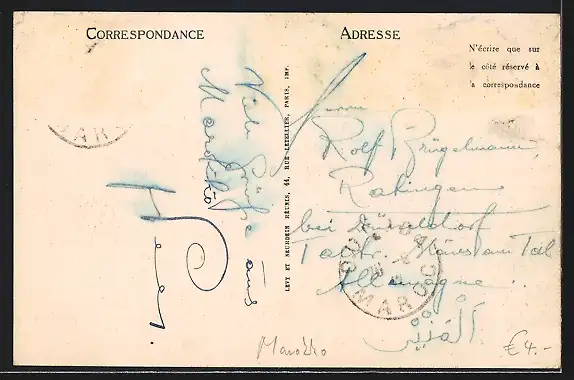 CORRESPONDANCE
ADRESSE
N'écrire que sur
le côté réservé à
la correspondance
LÉVY ET NEURDEIN RÉUNIS, 44, RUE LETELLIER, PARIS, IMP.
Viele Grüße aus
Marokko
Herrn
Rolf Brügelmann,
Ratingen
bei Düsseldorf
Talstr. Haus am Tal
Allemagne
MAROC
MAR
Marokko
€ 4.-